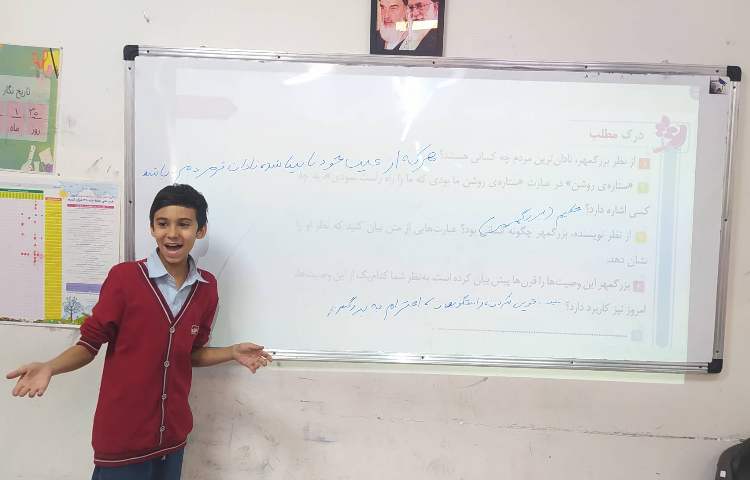 تاریخ نگار
۳۰
۱
روز
ماه
درک مطلب
۱ از نظر بزرگمهر، نادان‌ترین مردم چه کسانی هستند؟
هر که از عیب خود نابینا باشد نادان‌تر مردم باشد
۲ «ستاره‌ی روشن» در عبارت «ستاره‌ی روشن ما بودی که ما را راه راست نمودی»، به چه
کسی اشاره دارد؟ حکیم (بزرگمهر)
۳ از نظر نویسنده، بزرگمهر چگونه بود؟ عبارت‌هایی از متن بیان کنید که نظر او را
نشان دهد.
۴ بزرگمهر این وصیت‌ها را قرن‌ها پیش بیان کرده است. به‌نظر شما کدام‌یک از این وصیت‌ها،
امروز نیز کاربرد دارد؟ احترام به